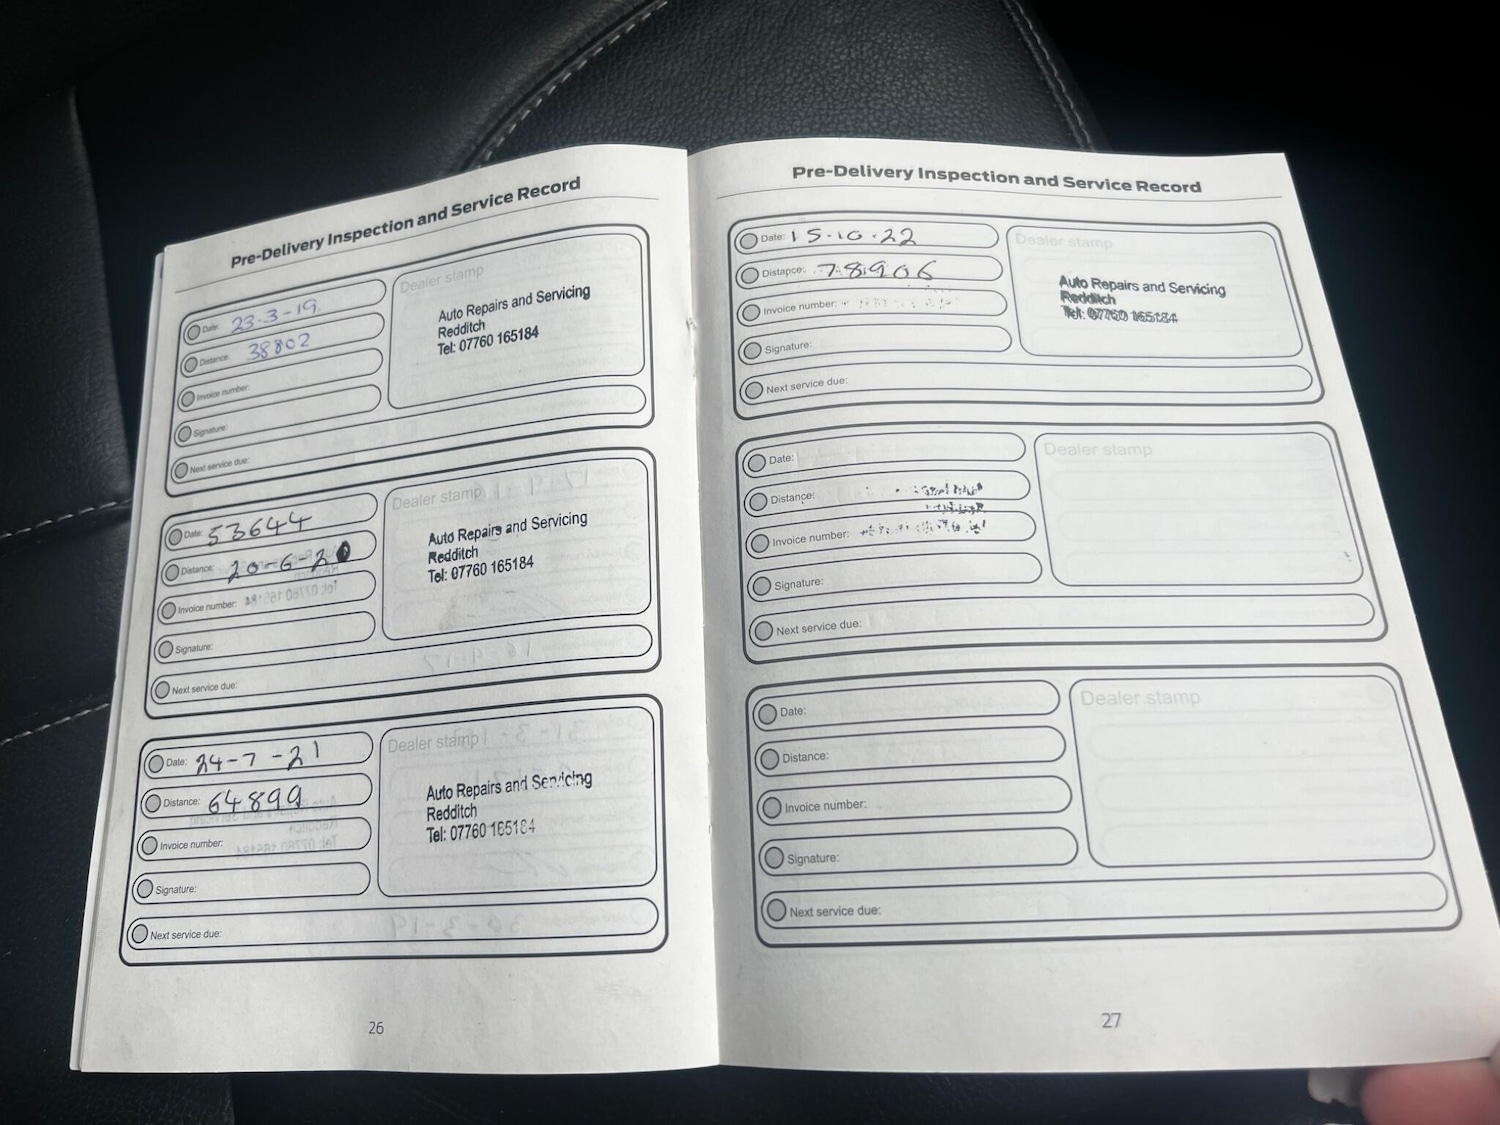 Pre-Delivery Inspection and Service Record
Date: 23-3-19
Distance: 38802
Invoice number:
Signature:
Next service due:
Dealer stamp
Auto Repairs and Servicing
Redditch
Tel: 07760 165184
Date: 53644
Distance: 20-6-20
Invoice number:
Signature:
Next service due:
Dealer stamp
Auto Repairs and Servicing
Redditch
Tel: 07760 165184
Date: 24-7-21
Distance: 64899
Invoice number:
Signature:
Next service due:
Dealer stamp
Auto Repairs and Servicing
Redditch
Tel: 07760 165184
26
Pre-Delivery Inspection and Service Record
Date: 15-10-22
Distance: 78906
Invoice number:
Signature:
Next service due:
Dealer stamp
Auto Repairs and Servicing
Redditch
Tel: 07760 165184
Date:
Distance:
Invoice number:
Signature:
Next service due:
Dealer stamp
Date:
Distance:
Invoice number:
Signature:
Next service due:
Dealer stamp
27